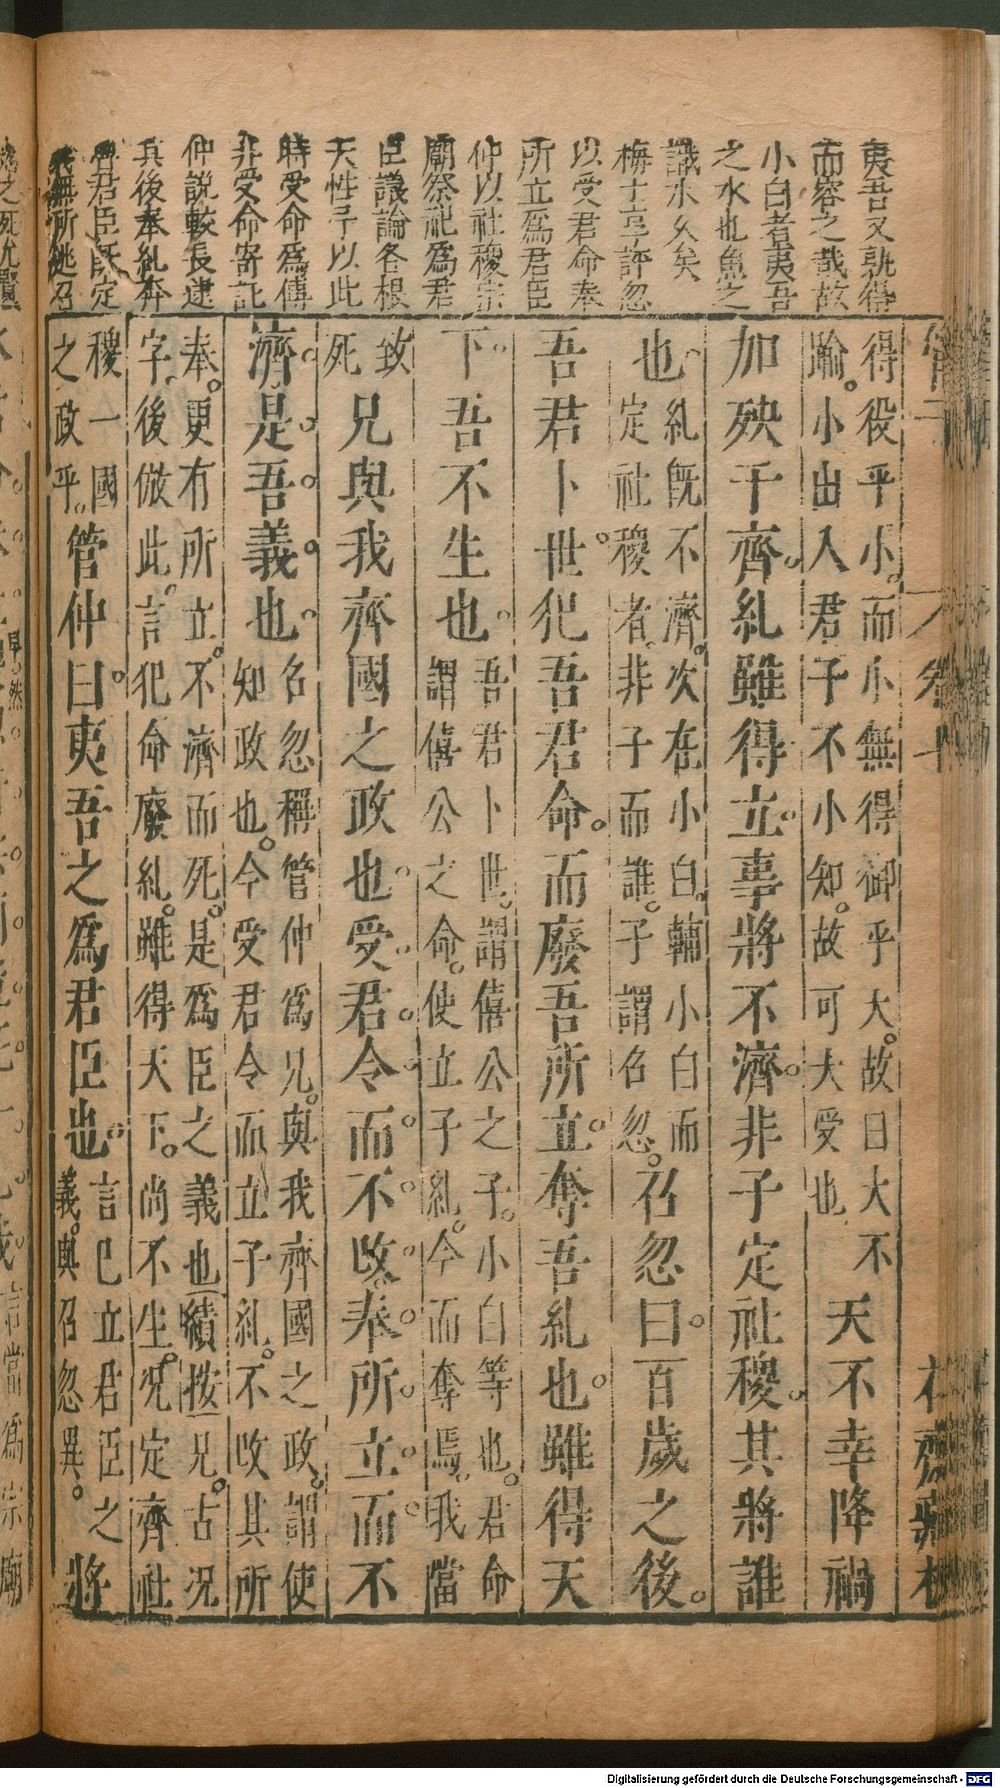 夷吾又孰得
而容之哉故
小白者夷吾
之水也魚之
識水久矣
梅士享評忽
以受君命奉
所立爲君臣
仲以社稷宗
廟祭祀爲君
臣議論各根
天性子以此
時受命爲傅
非受命寄託
仲說較長逮
其後奉糾奔
魯君臣既定
義無所逃召
管子
卷七
得役乎小。而小無得御乎大。故曰大不
踰。小出入君子不小知。故可大受也
天不幸降禍
加殃于齊。糾雖得立。事將不濟。非子定社稷。其將誰
也。
糾既不濟。次在小白。輔小白而
定社稷者。非子而誰。子謂名忽。
召忽曰。百歲之後。
吾君卜世。犯吾君命。而廢吾所立。奪吾糾也。雖得天
下。吾不生也。
吾君卜世。謂僖公之子。小白等也。君命
謂僖公之命。使立子糾。今而奪焉。我當
致
死
兄與我齊國之政也。受君令而不改。奉所立而不
濟。是吾義也。
名忽稱管仲爲兄。與我齊國之政。謂使
知政也。今受君令而立子糾。不改其所
奉。更有所立。不濟而死。是爲臣之義也續按兄。古况
字。後倣此。言犯命廢糾。雖得天下。尚不生。况定齊社
稷一國
之政乎。
管仲曰。夷吾之爲君臣也。
言已立君臣之
義。與召忽異。
將
Digitalisierung gefördert durch die Deutsche Forschungsgemeinschaft - DFG